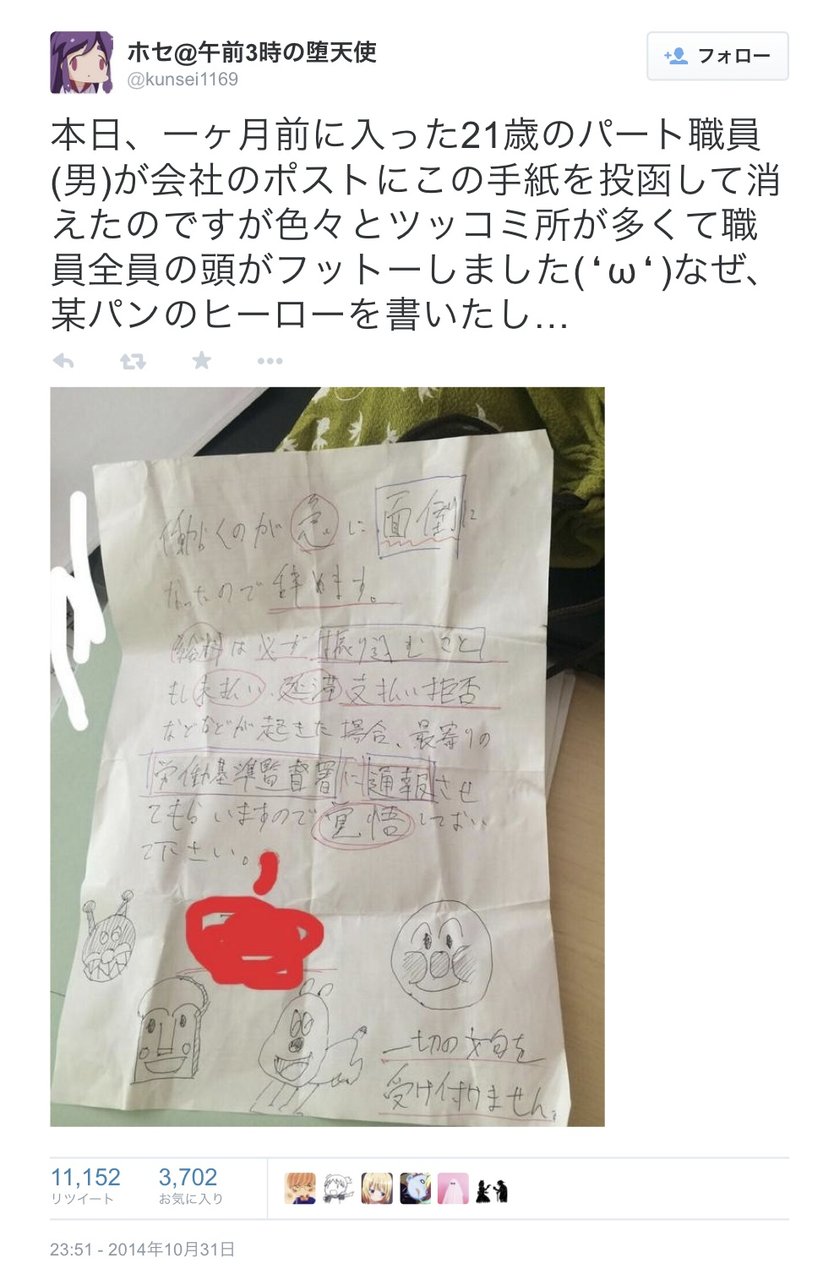 ホセ@午前3時の堕天使
@kunsei1169
フォロー
本日、一ヶ月前に入った21歳のパート職員
(男)が会社のポストにこの手紙を投函して消
えたのですが色々とツッコミ所が多くて職
員全員の頭がフットーしました( ‘ω‘ )なぜ、
某パンのヒーローを書いたし…
働くのが急に面倒に
なったので辞めます。
給料は必ず振り込むこと
もし未払い、延滞支払い拒否
などなどが起きた場合、最寄りの
労働基準監督署に通報させ
てもらいますので覚悟しておい
て下さい。
一切の文句を
受け付けません。
11,152
3,702
リツイート
お気に入り
23:51 - 2014年10月31日